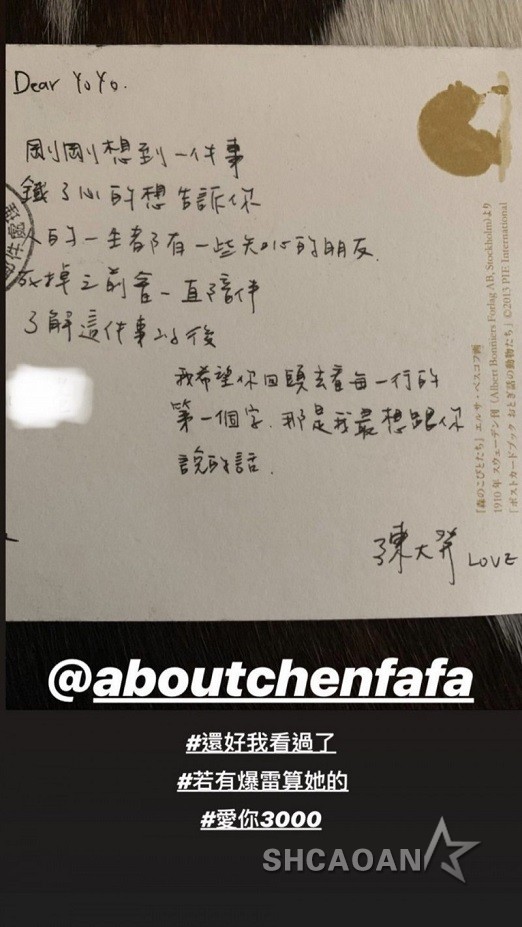 Dear YoYo.
剛剛想到一件事
鐵了心的想告訴你
人的一生都有一些知心的朋友.
死掉之前會一直陪伴
了解這件事以後
我希望你回頭去看每一行的
第一個字. 那是我最想跟你
說的話.
陳大発 LOVE
『森のこびとたち』エルサ・ベスコフ画
1910年 スウェーデン刊 (Albert Bonniers Forlag AB, Stockholm)より
「ポストカードブック おとぎ話の動物たち」©2015 PIE International
@aboutchenfafa
#還好我看過了
#若有爆雷算她的
#愛你3000
SHCAOAN